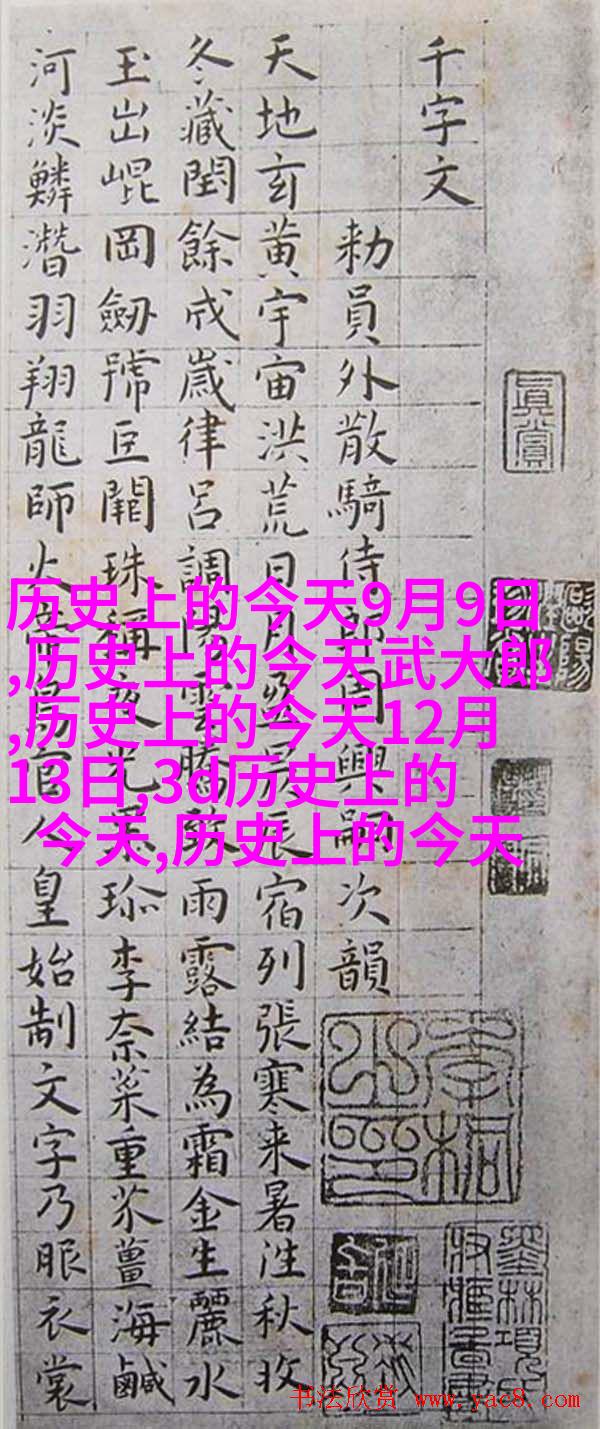 千字文
勑員外散騎侍郎周興嗣次韻
天地玄黄宇宙洪荒日月盈昃辰宿列張寒来暑往秋收
冬藏閏餘成歲律吕調陽雲騰致雨露結為霜金生麗水
玉出崐岡劒號巨闕珠稱夜光菓珎李柰菜重芥薑海鹹
河淡鱗潛羽翔龍師火帝鳥官人皇始制文字乃服衣裳
眞賞
历史上的今天9月9日
,历史上的今天武大郎
,历史上的今天12月
13日,3d历史上的
今天,历史上的今天
书法欣赏 www.yac8.com